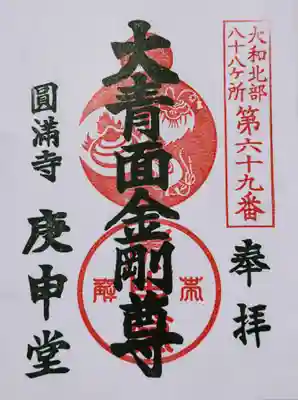 大和北部
八十八ヶ所
第六十九番
奉拝
大青面金剛尊
圓満寺
庚申堂